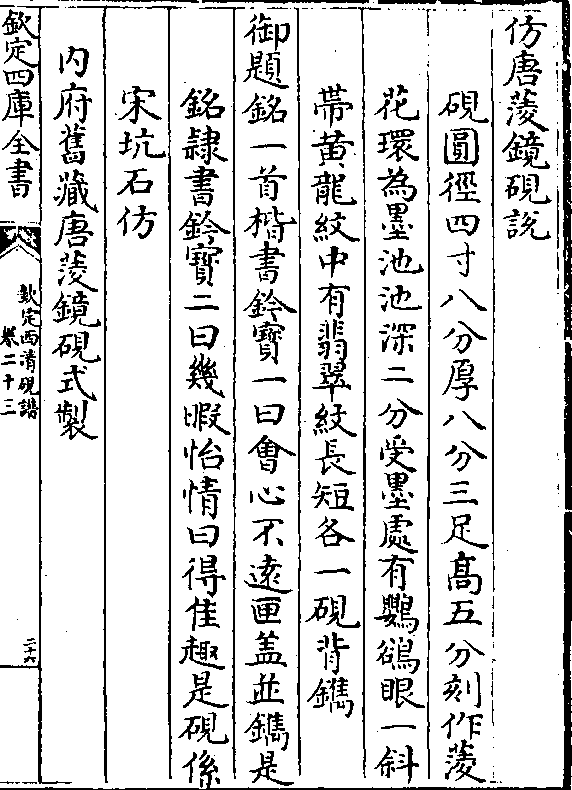 仿唐菱鏡硯說
硯圓徑四寸八分厚八分三足高五分刻作菱
花環為墨池池深二分受墨處有鸜鵒眼一斜
帶黃龍紋中有翡翠紋長短各一硯背鐫
御題銘一首楷書鈐寶一曰會心不遠匣蓋並鐫是
銘隸書鈐寶二曰幾暇怡情曰得佳趣是硯係
宋坑石仿
內府舊藏唐菱鏡硯式製
欽定四庫全書
欽定西清硯譜
卷二十三
二十六